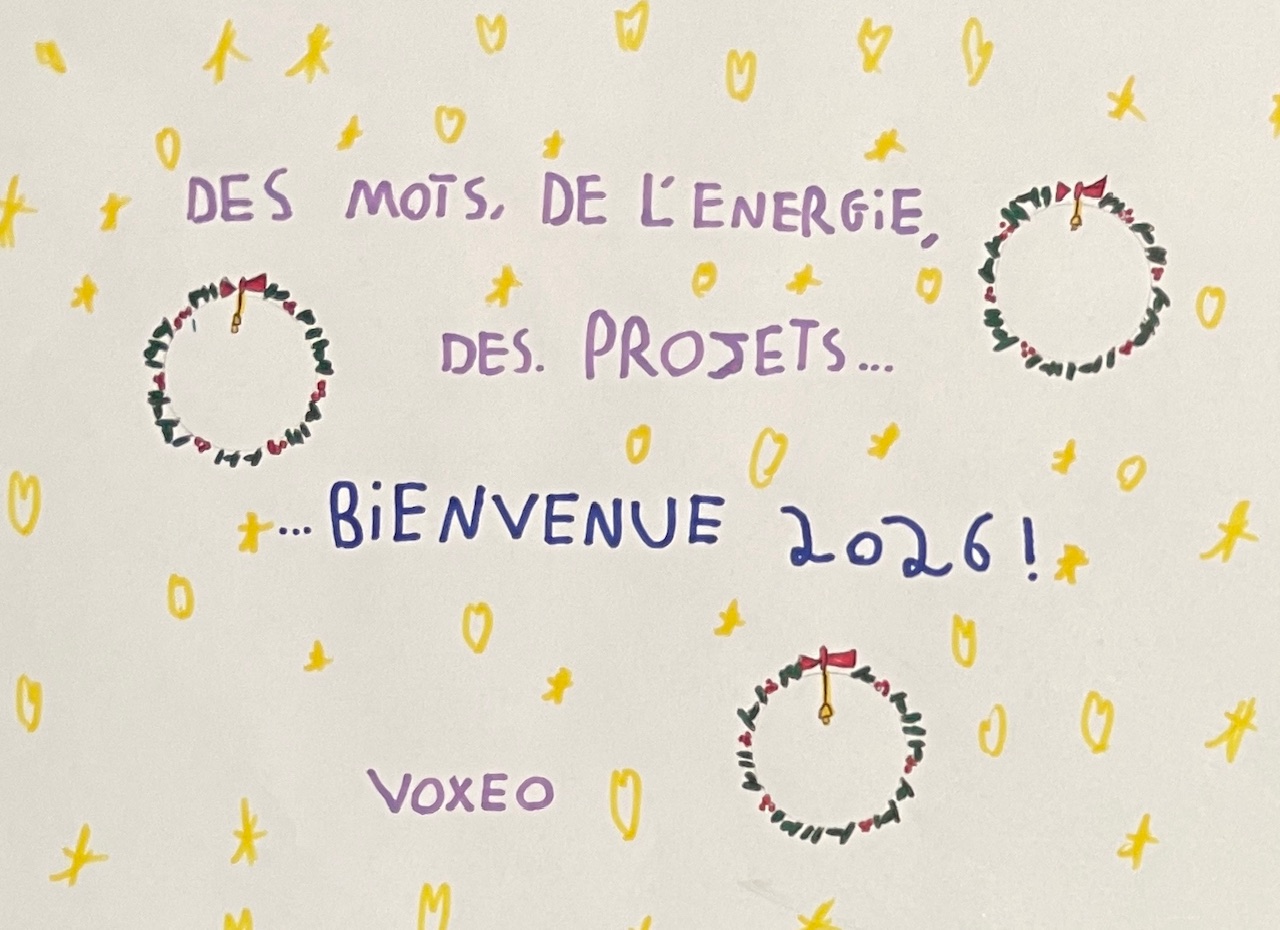 DES MOTS, DE L'ENERGiE,
DES. PROJETS...
...BiENVENUE 2026!
VOXEO